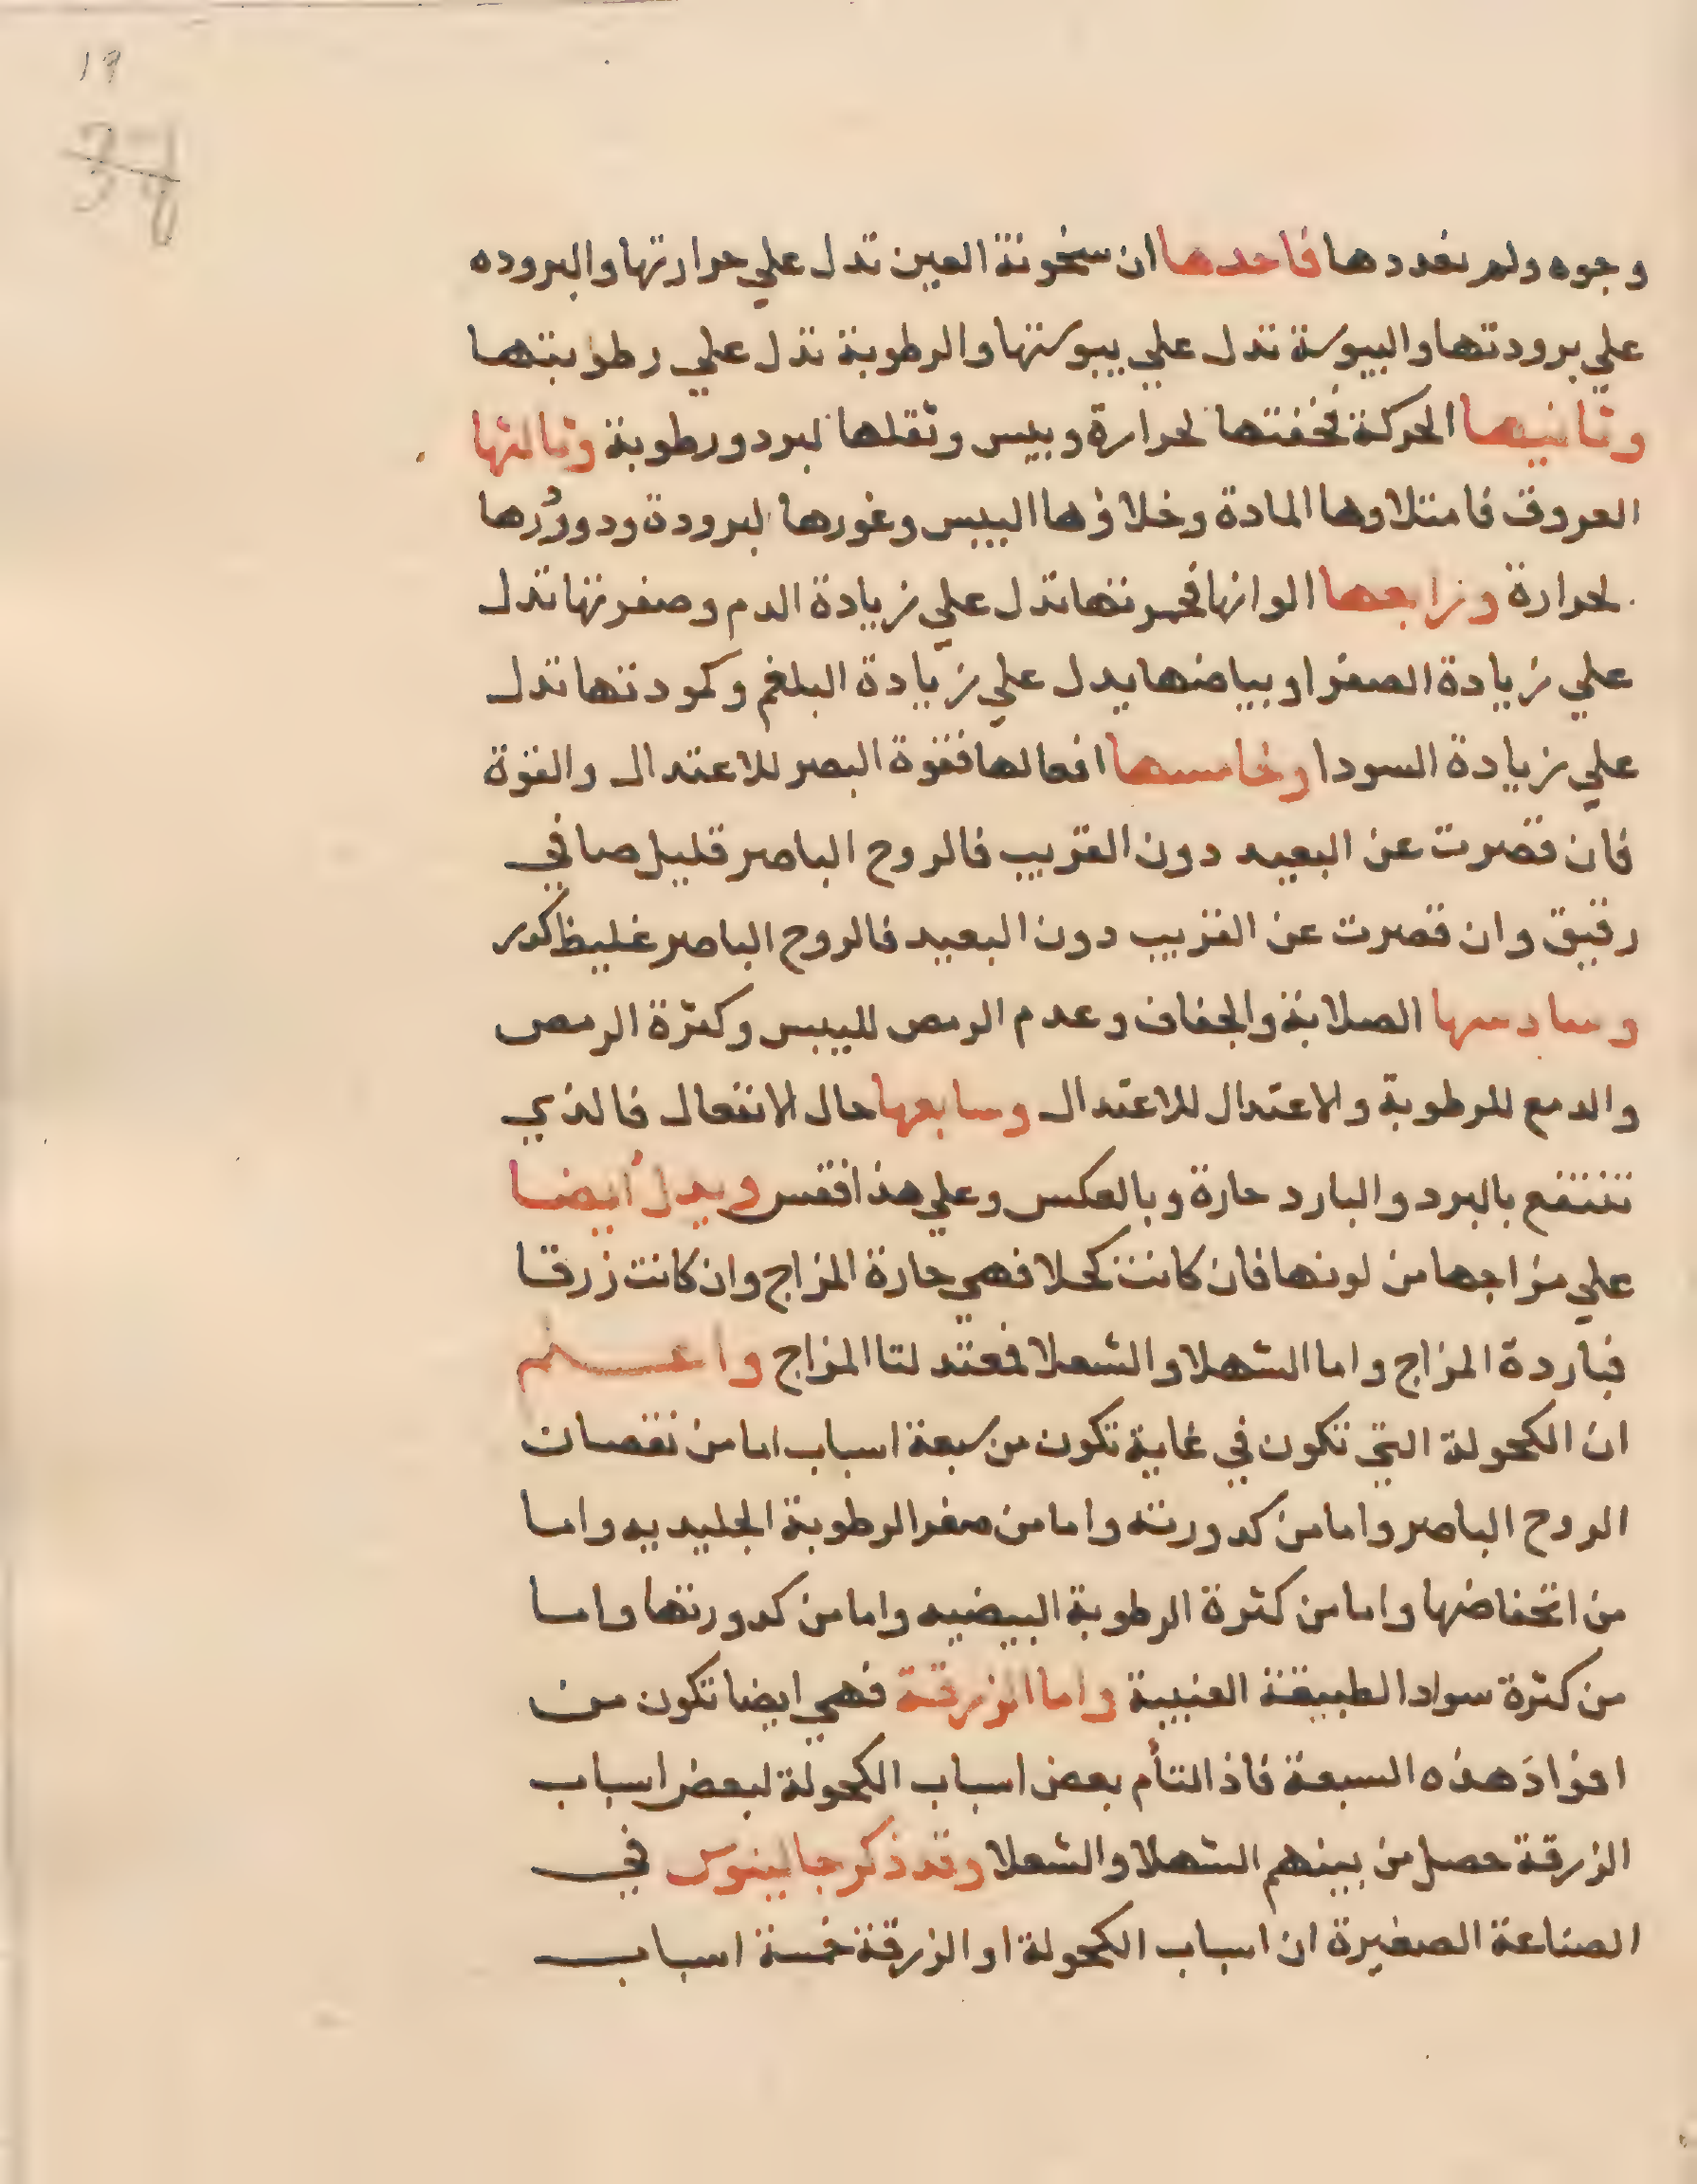 19
37
وجوه ولم نعددها فاحدها ان سخونة العين تدل علي حرارتها والبروده
علي برودتها والييوسة تدل علي يبوستها والرطوبة تدل علي رطوبتها
وثانيها الحركة فخفتها لحرارة ويبس وثقلها لبرد ورطوبة وثالثها
العروق فامتلاوها المادة وخلاؤها اليبس وغورها لبرودة ودورورها
لحرارة ورابعها الوانها فحمرتها تدل علي زيادة الدم وصفرتها تدل
علي زيادة الصفرا وبياضها يدل علي زيادة البلغم وكمودتها تدل
علي زيادة السودا وخامسها افعالها فقوة البصر للاعتدال والقوة
فان قصرت عن البعيد دون القريب فالروح الباصر قليل صافي
رقيق وان قصرت عن القريب دون البعيد فالروح الباصر غليظ كدر
وسادسها الصلابة والجفاف وعدم الرمص لليبس وكثرة الرمص
والدمع للرطوبة والاعتدال للاعتدال وسابعها حال الانفعال فالذي
تنتفع بالبرد والبارد حارة وبالعكس وعلي هذا فقس ويدل أيضا
علي مزاجها من لونها فان كانت كحلا فهي حارة المزاج وان كانت زرقا
فباردة المزاج واما الشهلا والشعلا فمعتدلتا المزاج واعلم
ان الكحولة التي تكون في غاية تكون من سبعة اسباب اما من نقصان
الروح الباصر واما من كدورته واما من صغر الرطوبة الجليديه واما
من انخفاضها واما من كثرة الرطوبة البيضيه واما من كدورتها واما
من كثرة سواد الطبيقة العنبية واما الزرقة فهي ايضا تكون من
اضواد هذه السبعة فاذا التأم بعض اسباب الكحولة لبعض اسباب
الزرقة حصل من بينهم الشهلا والشعلا وقد ذكر جالينوس في
الصناعة الصغيرة ان اسباب الكحولة او الزرقة خمسة اسباب